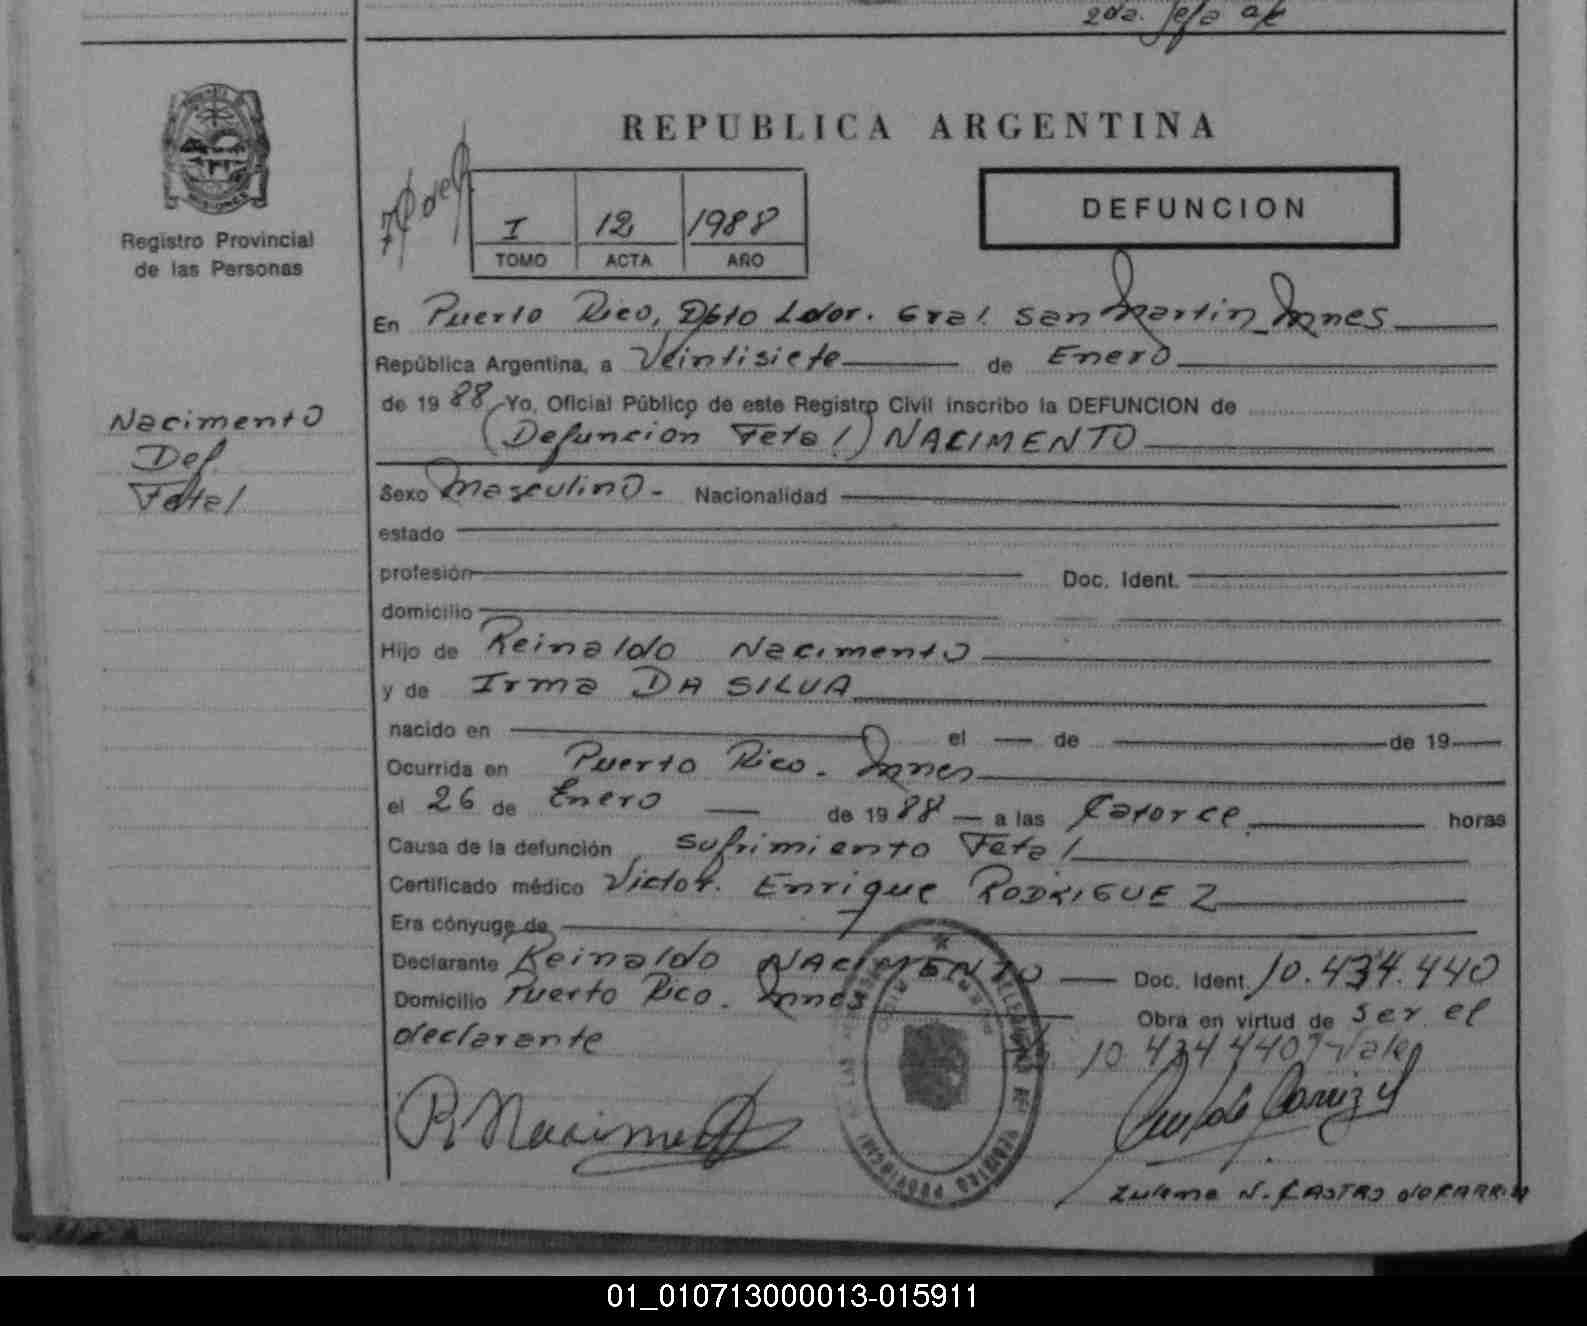 2da. Jefa a/c
REPUBLICA ARGENTINA
I 12 1988
TOMO ACTA AÑO
DEFUNCION
Registro Provincial
de las Personas
En Puerto Rico, Dpto Ldor. Gral. San Martin Mnes
República Argentina, a Veintisiete de Enero
de 19 88 Yo, Oficial Público de este Registro Civil inscribo la DEFUNCION de
(Defuncion Fetal) NACIMENTO
Nacimento
Def.
Fetal
Sexo Masculino - Nacionalidad
estado
profesión Doc. Ident.
domicilio
Hijo de Reinaldo Nacimento
y de Irma DA SILVA
nacido en el de de 19
Ocurrida en Puerto Rico. Mnes
el 26 de Enero de 19 88 a las Catorce horas
Causa de la defunción Sufrimiento Fetal
Certificado médico Victor Enrique RODRIGUEZ
Era cónyuge de
Declarante Reinaldo NACIMENTO Doc. Ident. 10.434.440
Domicilio Puerto Rico. Mnes Obra en virtud de ser el
declarante
10.434.440 Vale
R. Nacimento
Zulema N. CASTRO de
01_010713000013-015911